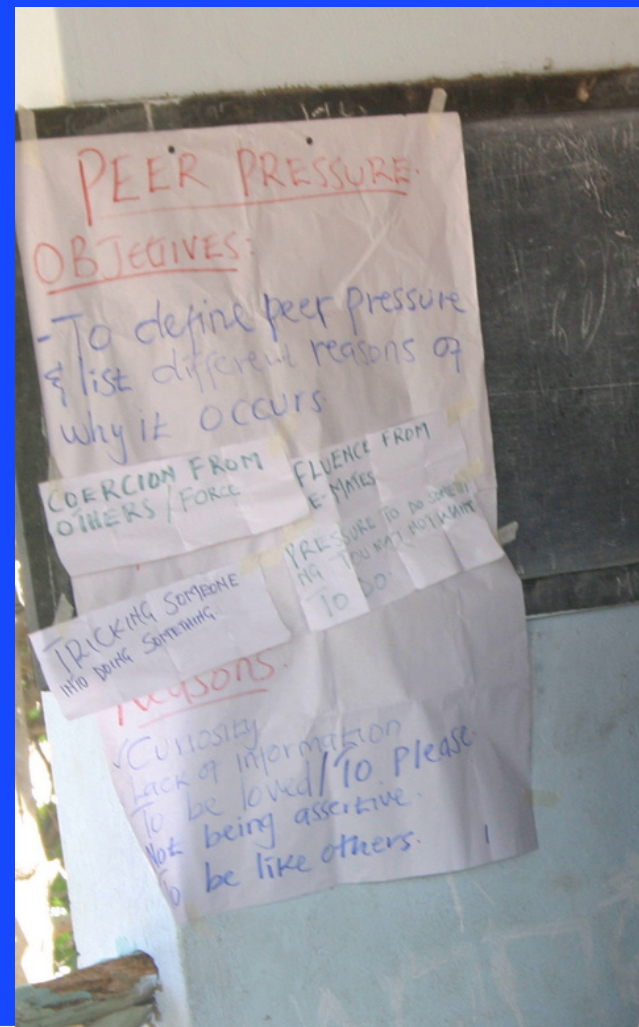 PEER PRESSURE.
OBJECTIVES:
-To define peer pressure
& list different reasons of
why it occurs
COERCION FROM
OTHERS / FORCE
FLUENCE FROM
E-MATES
PRESSURE TO DO SOMETHI
NG YOU MAY NOT WANT
TO DO
TRICKING SOMEONE
INTO DOING SOMETHING
Reasons.
✓Curiosity
Lack of information
To be loved/To Please.
Not being assertive.
To be like others.